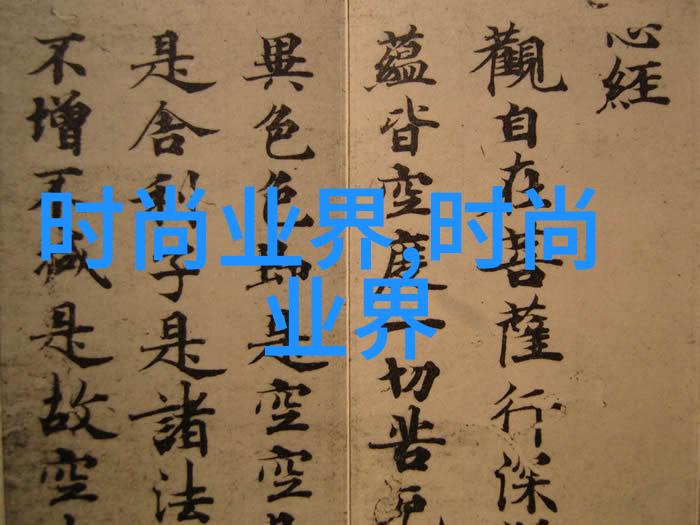 心經
觀自在菩薩行深
蘊皆空度一切苦厄
異色色即是空空是
是舍利子是諸法
不增不減是故空
时尚业界,时尚
业界